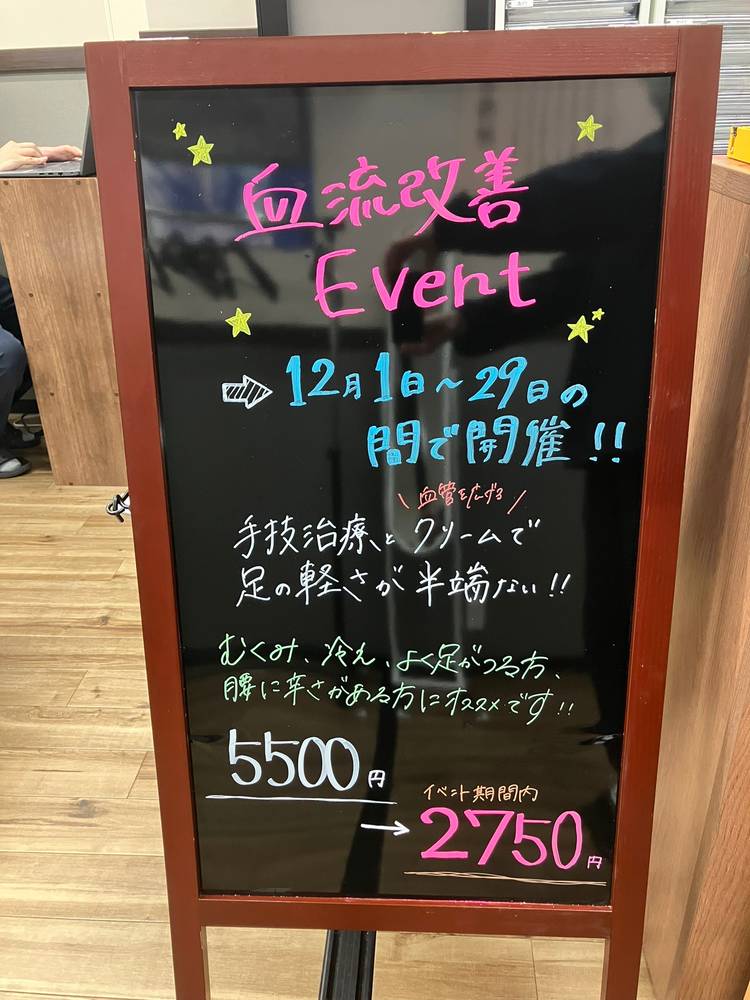 血流改善
Event
12月1日～29日の
間で開催!!
\ 血管を広げる /
手技治療とクリームで
足の軽さが半端ない!!
むくみ、冷え、よく足がつる方、
腰に辛さがある方にオススメです!!
5500円
イベント期間内
→2750円